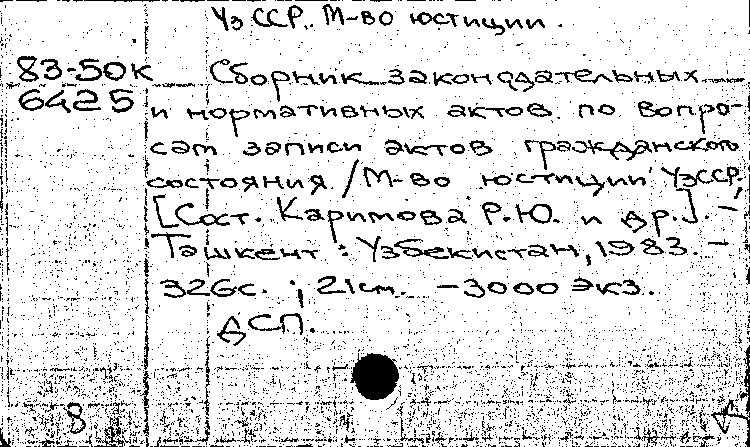 УзССР. М-во юстиции.
83-50к Сборник законодательных
6425 и нормативных актов по вопро-
сам записи актов гражданского
состояния / М-во юстиции УзССР,
[Сост. Каримова Р.Ю. и др.]. –
Ташкент : Узбекистан, 1983. –
326с. ; 21см. – 3000 экз.
ДСП.
8